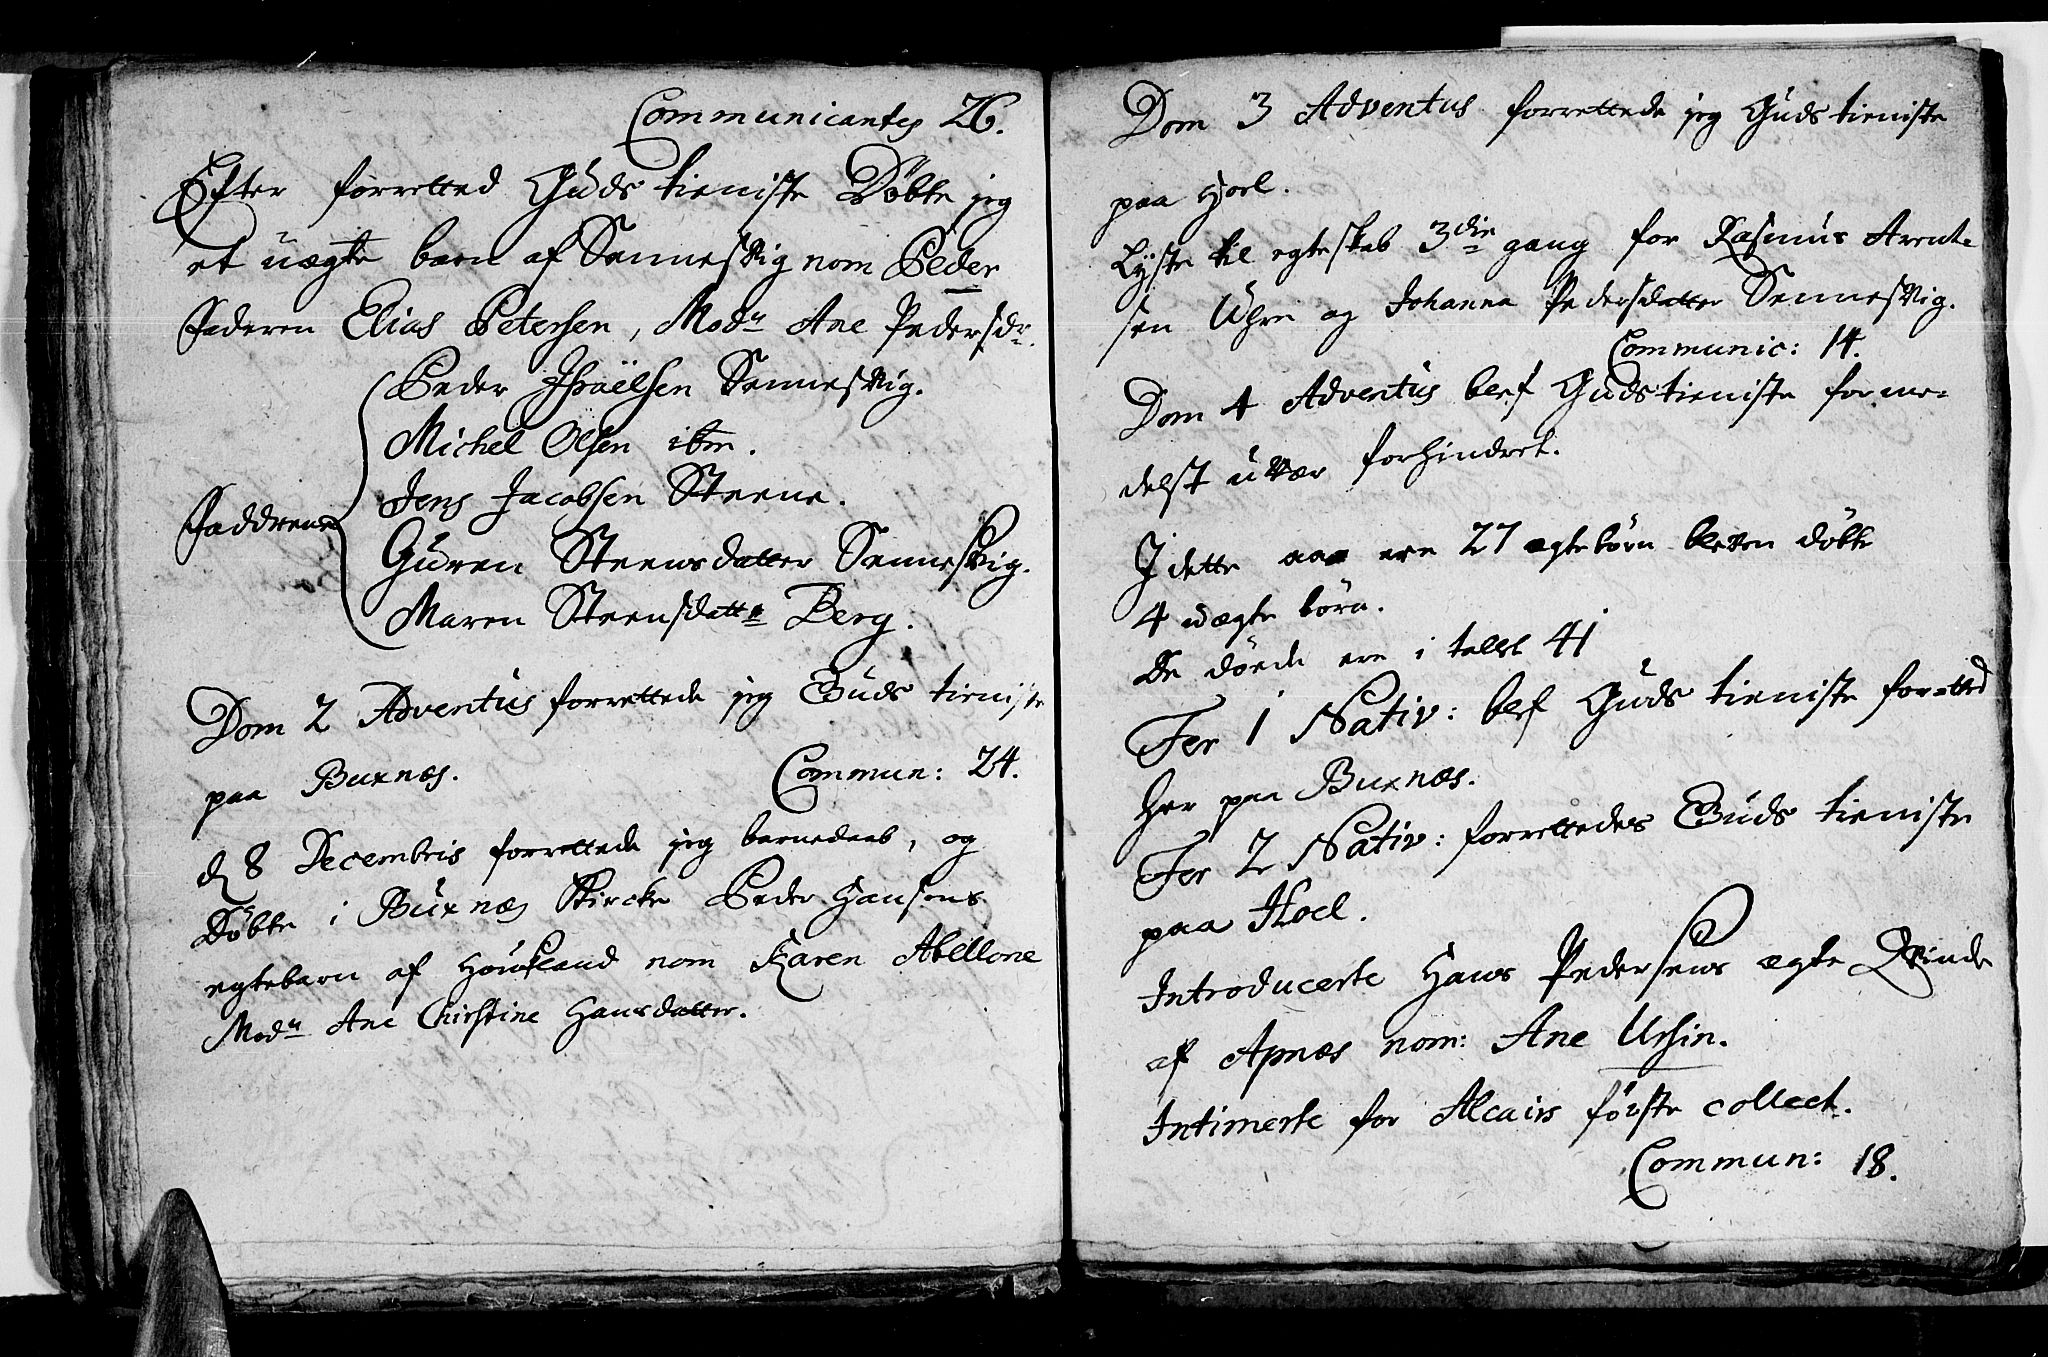 Communicantes 26.
Efter forretted Guds tieniste Döbte jeg
et uægte barn af Sennesvig nom Peder
Faderen Elias Petersen, Modn Ane Pedersdr.
Peder Israëlsen Sennesvig.
Michel Olsen ibm.
Jens Jacobsen Steene.
Faddrene
Guren Steensdatter Sennesvig.
Maren Steensdattr Berg.
Dom 2 Adventus forrettede jeg Guds tieniste
paa Buxnæs. Commun: 24.
d 8 Decembris forrettede jeg barnedaab, og
Döbte i Buxnæs Kircke Peder Hansens
egtebarn af Houkland nom Karen Abellone
Modn Ane Christine Hansdatter.
Dom 3 Adventus forrettede jeg Guds tieniste
paa Hoel.
Lyste til egteskab 3die gang for Rasmus Arent-
sen Uhre og Johanna Pedersdatter Sennesvig.
Communic: 14.
Dom 4 Adventus blef Guds tieniste forme-
delst uvær forhindret.
I dette aar ere 27 egtebörn bleven döbte
4 uægte börn.
De döede ere i tallet 41
Fer 1 Nativ: blef Guds tieniste forretted
her paa Buxnæs.
Fer 2 Nativ: forrettedes Guds tieniste
paa Hoel.
Introducerte Hans Pedersens ægte Qvinde
af Apnæs nom: Ane Ursin.
Intimerte for Alcairs förste collect.
Commun: 18.